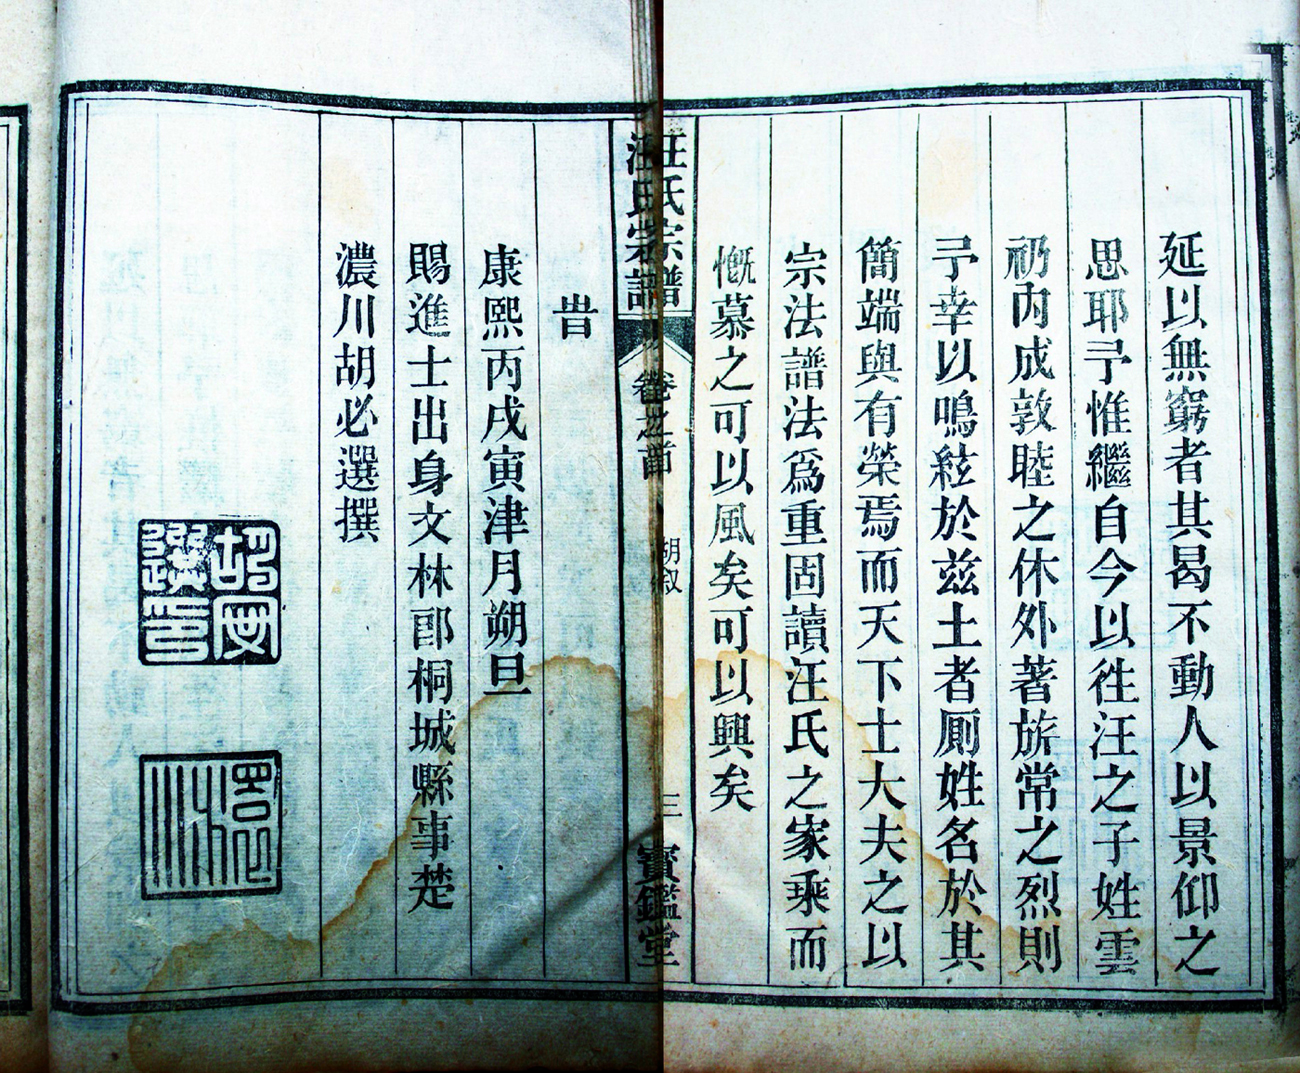 延以無窮者其曷不動人以景仰之
思耶予惟繼自今以徃汪之子姓雲
礽內成敦睦之休外著旂常之烈則
予幸以鳴絃於茲土者厠姓名於其
簡端與有榮焉而天下士大夫之以
宗法譜法爲重固讀汪氏之家乘而
慨慕之可以風矣可以興矣
汪氏宗譜 卷之首 胡叙 三 寶鑑堂
旹
康熙丙戌寅津月朔旦
賜進士出身文林郎桐城縣事楚
濃川胡必選撰
胡必選印